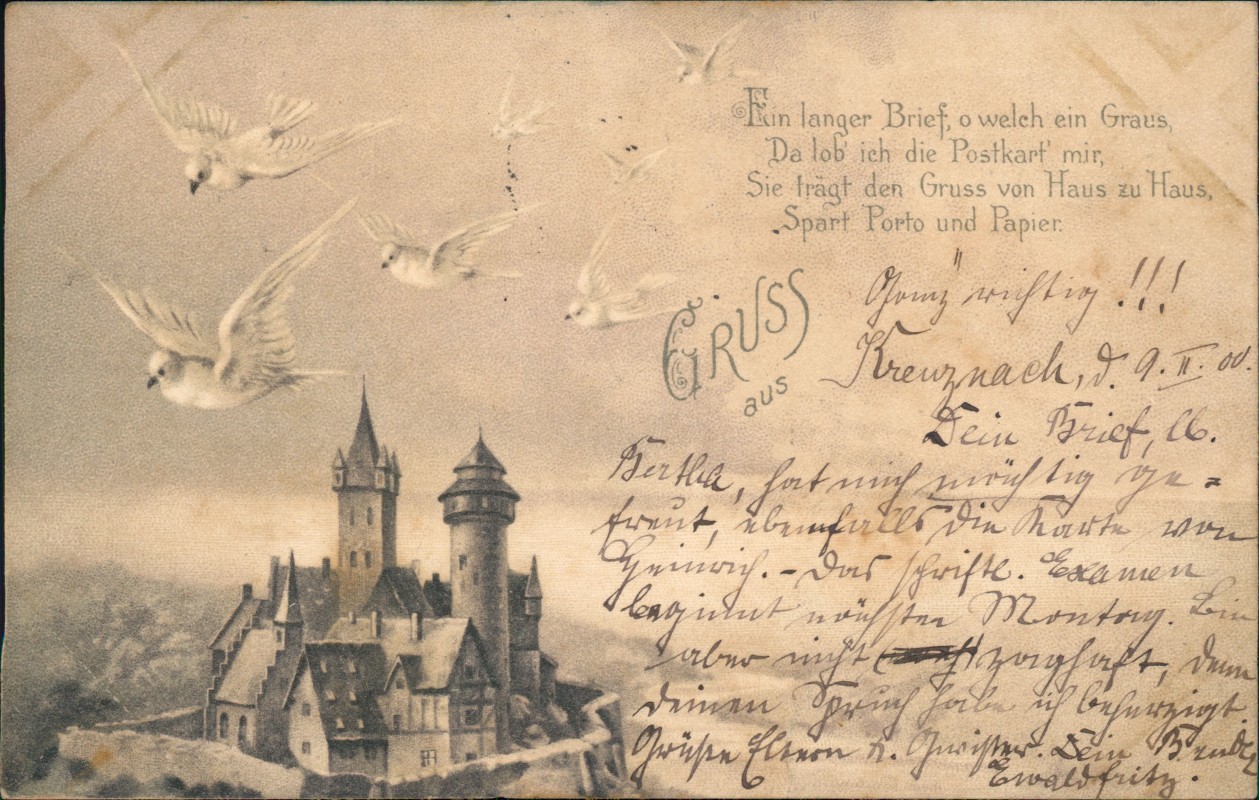 Ein langer Brief, o welch ein Graus,
Da lob' ich die Postkart' mir,
Sie trägt den Gruss von Haus zu Haus,
Spart Porto und Papier.
Gruss
aus
Ganz richtig!!!
Kreuznach, d. 9. II. 00.
Dein Brief, lb.
Bertha, hat mich mächtig ge=
freut, ebenfalls die Karte von
Heinrich. - Das schriftl. Examen
beginnt nächsten Montag. Bin
aber nicht zaghaft, denn
deinen Spruch habe ich beherzigt.
Grüße Eltern u. Gwister. Dein
Ewald Fritz.